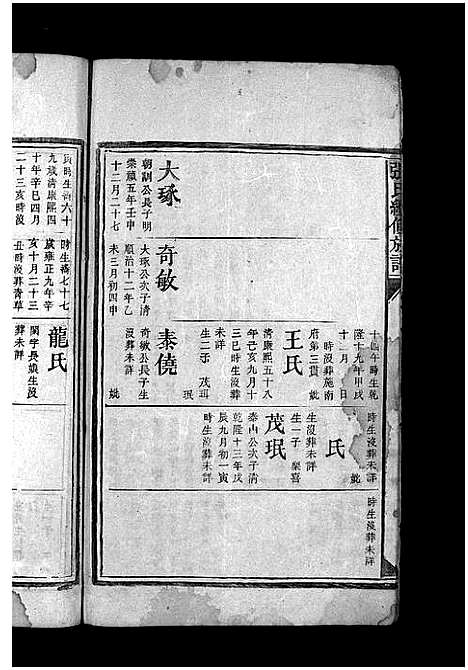 張氏續修族譜
大琢
朝嗣公長子明
崇禎五年壬申
十二月二十七
奇敏
大琢公次子清
順治十二年乙
未三月初四申
泰僥
奇敏公長子生
沒葬未詳
妣
十四午時生乾
隆十九年甲戌
十一月 日
時沒葬施南
府第三貫 妣
王氏
清康熙五十八
年己亥九月十
三巳時生沒葬
未詳
生二子 茂珥
珉
時生沒葬未詳
妣
氏
生沒葬未詳
生一子 榮喜
茂珉
泰山公次子清
乾隆十三年戊
辰九月初一寅
時生沒葬未詳
時生沒葬未詳
九 清康熙四
十年辛巳四月
二十三亥時沒
時生 七十七
歲雍正九年辛
亥十月二十三
丑時沒葬青草
龍氏
閏字長娘生沒
葬未詳